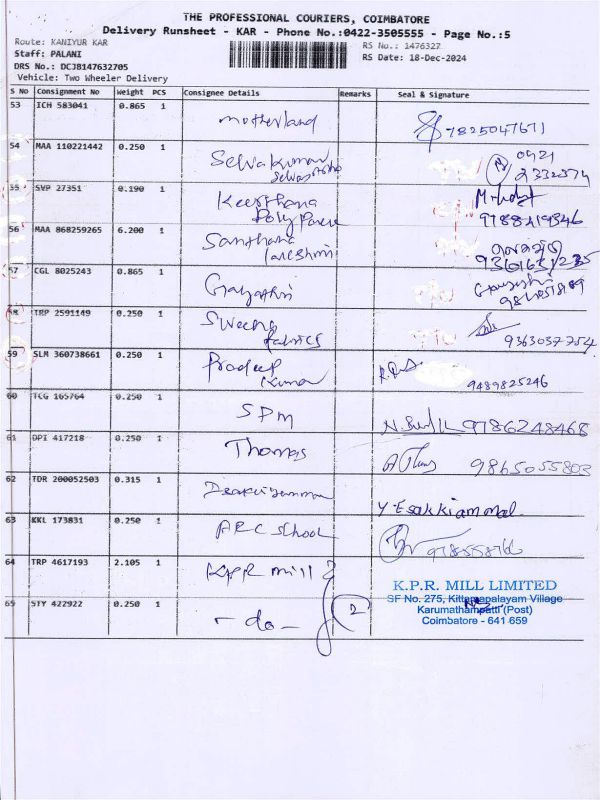 THE PROFESSIONAL COURIERS, COIMBATORE
Delivery Runsheet - KAR - Phone No.:0422-3505555 - Page No.:5
Route: KANIYUR KAR
RS No.: 1476327
Staff: PALANI
RS Date: 18-Dec-2024
DRS No.: DCJB147632705
Vehicle: Two Wheeler Delivery
S No Consignment No Weight PCS Consignee Details Remarks Seal & Signature
53 ICH 583041 0.865 1 motherland 7825047671
54 MAA 110221442 0.250 1 Selvakumar 0421
2332574
55 SVP 27351 0.190 1 Keerthana
56 MAA 868259265 6.200 1 Santhana
57 CGL 8025243 0.865 1 Gayathri
58 TRP 2591149 0.250 1 Sweena
fabrics 9363037754
59 SLM 360738661 0.250 1 Pradeep
Kumar 9489825246
60 TCG 165764 0.250 1 SPM 9786248468
61 DPI 417218 0.250 1 Thomas 9865055803
62 TDR 200052503 0.315 1 Y. Esakkiammal
63 KKL 173831 0.250 1 ARC school
64 TRP 4617193 2.105 1 KPR mill
K.P.R. MILL LIMITED
SF No. 275, Kittampalayam Village
Karumathampatti (Post)
Coimbatore - 641 659
65 STY 422922 0.250 1 - do - 2